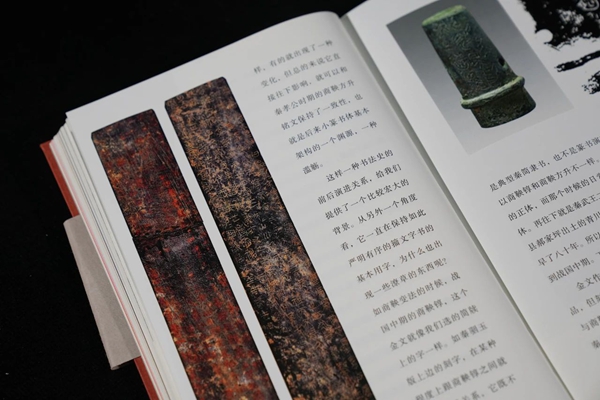 样，有的就出现了一种
变化，但总的来说它直
接往下影响，就可以和
秦孝公时期的商鞅方升
铭文保持了一致性，也
就是后来小篆书体基本
架构的一个渊源，一种
滥觞。
这样一种书法史的
前后演进关系，给我们
提供了一个比较宏大的
背景，从另外一个角度
看，它一直在保持如此
严明有序的籀文字书的
基本用字，为什么也出
现一些潦草的东西呢？
如商鞅变法的时候，战
国中期的商鞅镦，这个
金文就像我们选的简牍
上的字一样，如秦骃玉
版上边的刻字，在某种
程度上跟商鞅镦之间就
关系，它就不
是典型秦简隶书，也不是篆书演
以商鞅镦和商鞅方升不一样。
的正体，而那个时候的日常
体，再往下就是秦武王二
县郝家坪出土的青川
早了八十年，所以
到战国中期，
金文作
品，但
与商
秦